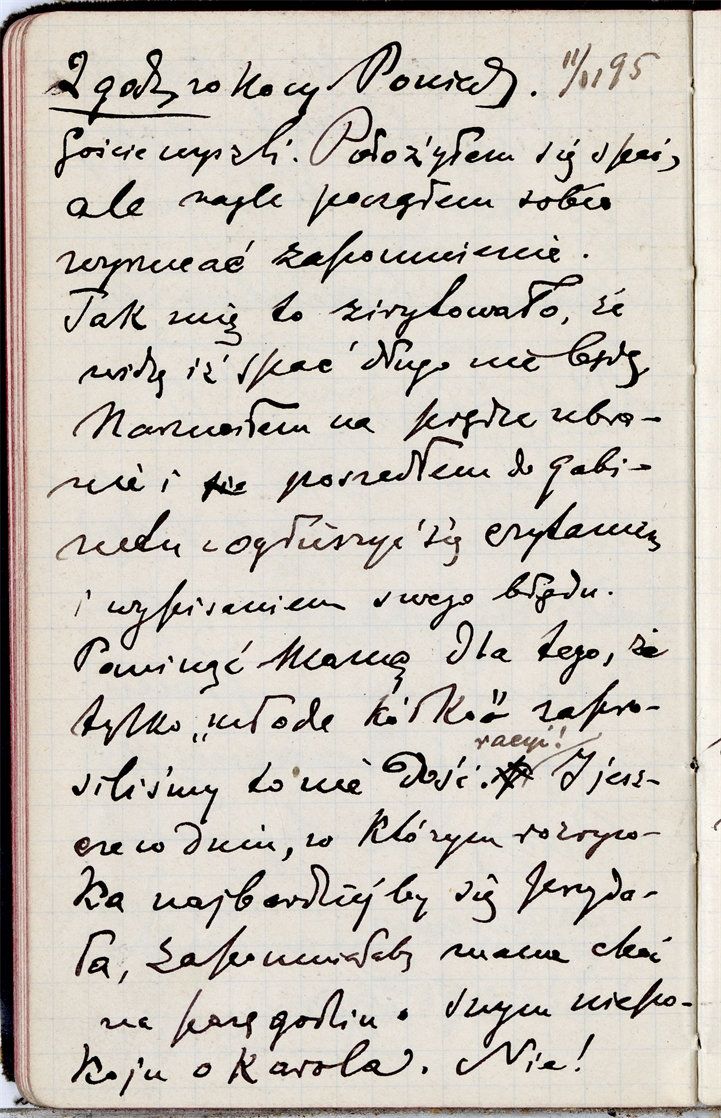 2 godz. w nocy Poniedz. 11/XI 95
Goście wyszli. Położyłem się spać,
ale nagle począłem sobie
wyrzucać zapomnienie.
Tak mię to zirytowało, że
widzę iż spać długo nie będę,
Narzuciłem na prędce ubra-
nie i poszedłem do gabi-
netu zagłuszyć się czytaniem
i wypisaniem swego błędu.
Pominąć Mamę dla tego, że
tylko „młode kółko" zapro-
siliśmy to nie dość racyi! I jesz-
cze w dniu, w którym rozryw-
ka najbardziej by się przyda-
ła, zapomniałaby mama choć
na parę godzin o swym niepo-
koju o Karola. Nie!